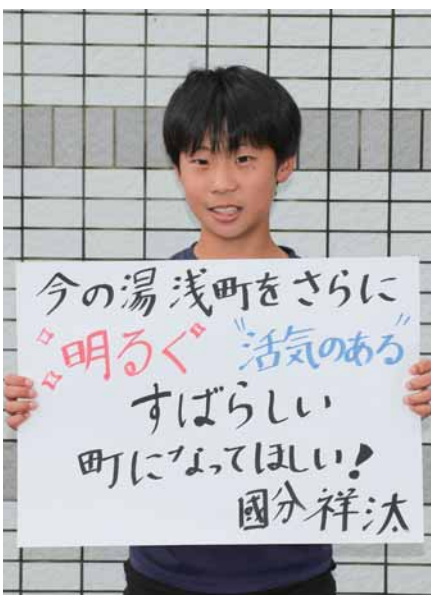 今の湯浅町をさらに
"明るく" "活気のある"
すばらしい
町になってほしい!
國分祥汰